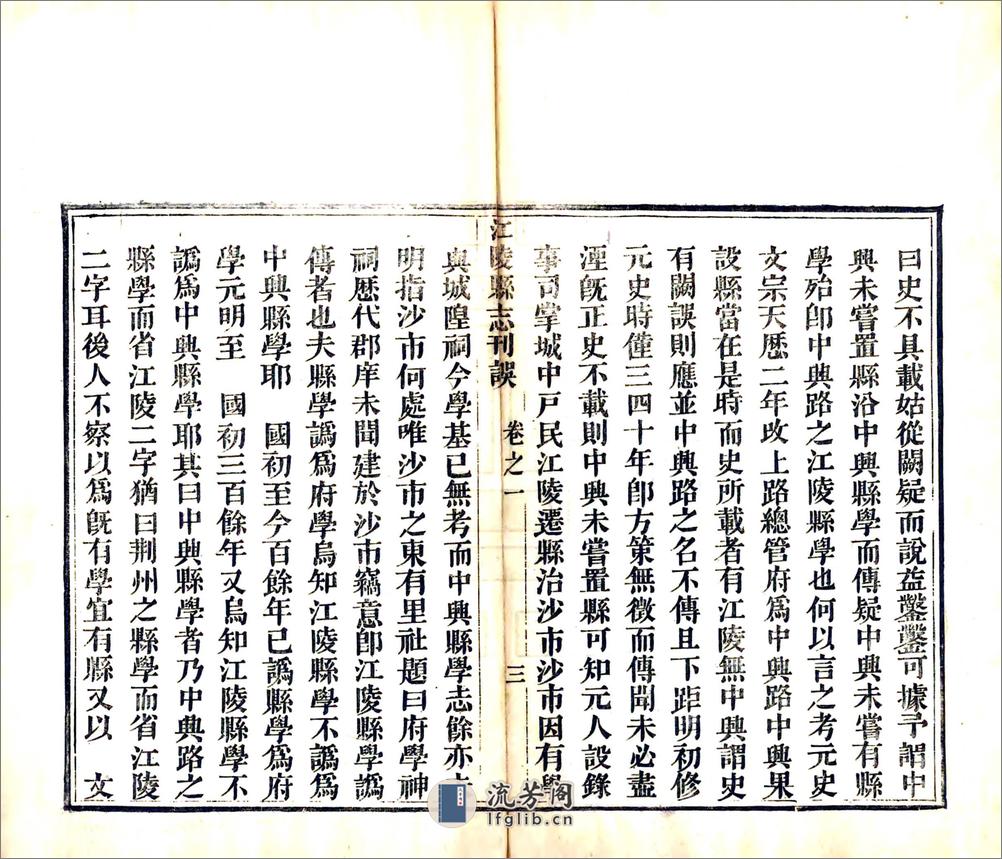 曰史不具載姑從闕疑而說益鑿鑿可據予謂中
興未嘗置縣沿中興縣學而傳疑中興未嘗有縣
學殆卽中興路之江陵縣學也何以言之考元史
文宗天歷二年改上路總管府爲中興路中興果
設縣當在是時而史所載者有江陵無中興謂史
有闕誤則應並中興路之名不傳且下距明初修
元史時僅三四十年卽方策無徵而傳聞未必盡
湮旣正史不載則中興未嘗置縣可知元人設錄
事司掌城中戸民江陵遷縣治沙市沙市因有學
江陵縣志刊誤 卷之一 三
與城隍祠今學基已無考而中興縣學志餘亦
明指沙市何處唯沙市之東有里社題曰府學神
祠歷代郡庠未聞建於沙市竊意卽江陵縣學譌
傳者也夫縣學譌爲府學烏知江陵縣學不譌爲
中興縣學耶 國初至今百餘年已譌縣學爲府
學元明至 國初三百餘年又烏知江陵縣學不
譌爲中興縣學耶其曰中興縣學者乃中興路之
縣學而省江陵二字猶曰荆州之縣學而省江陵
二字耳後人不察以爲旣有學宜有縣又以 文
流芳阁
lfglib.cn